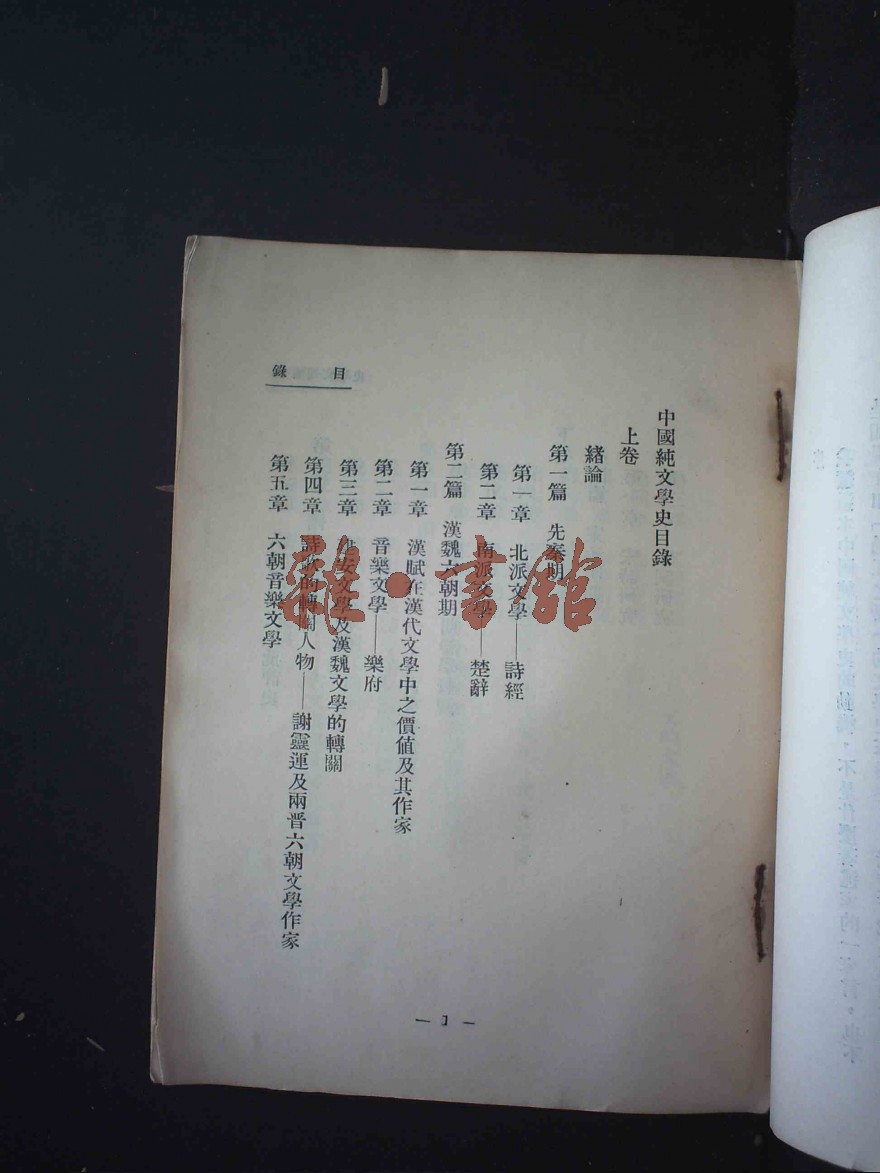 中國純文學史目錄
上卷
緒論
第一篇 先秦期
第一章 北派文學——詩經
第二章 南派文學——楚辭
第二篇 漢魏六朝期
第一章 漢賦在漢代文學中之價值及其作家
第二章 音樂文學——樂府
第三章 安文學及漢魏文學的轉關
第四章 詩歌的轉關人物——謝靈運及兩晋六朝文學作家
第五章 六朝音樂文學
目錄
雜·書館